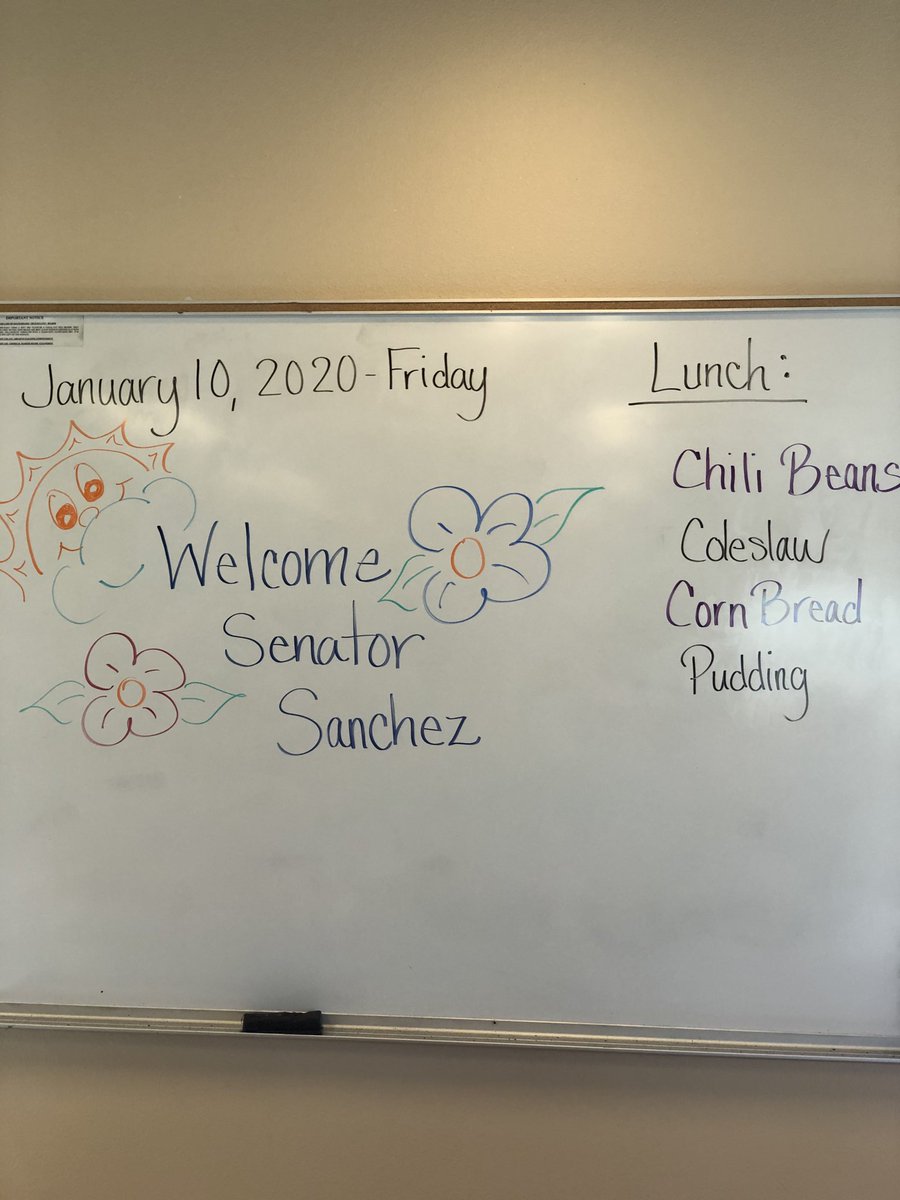 IMPORTANT NOTICE
January 10, 2020 - Friday
Welcome
Senator
Sanchez
Lunch:
Chili Beans
Coleslaw
Corn Bread
Pudding